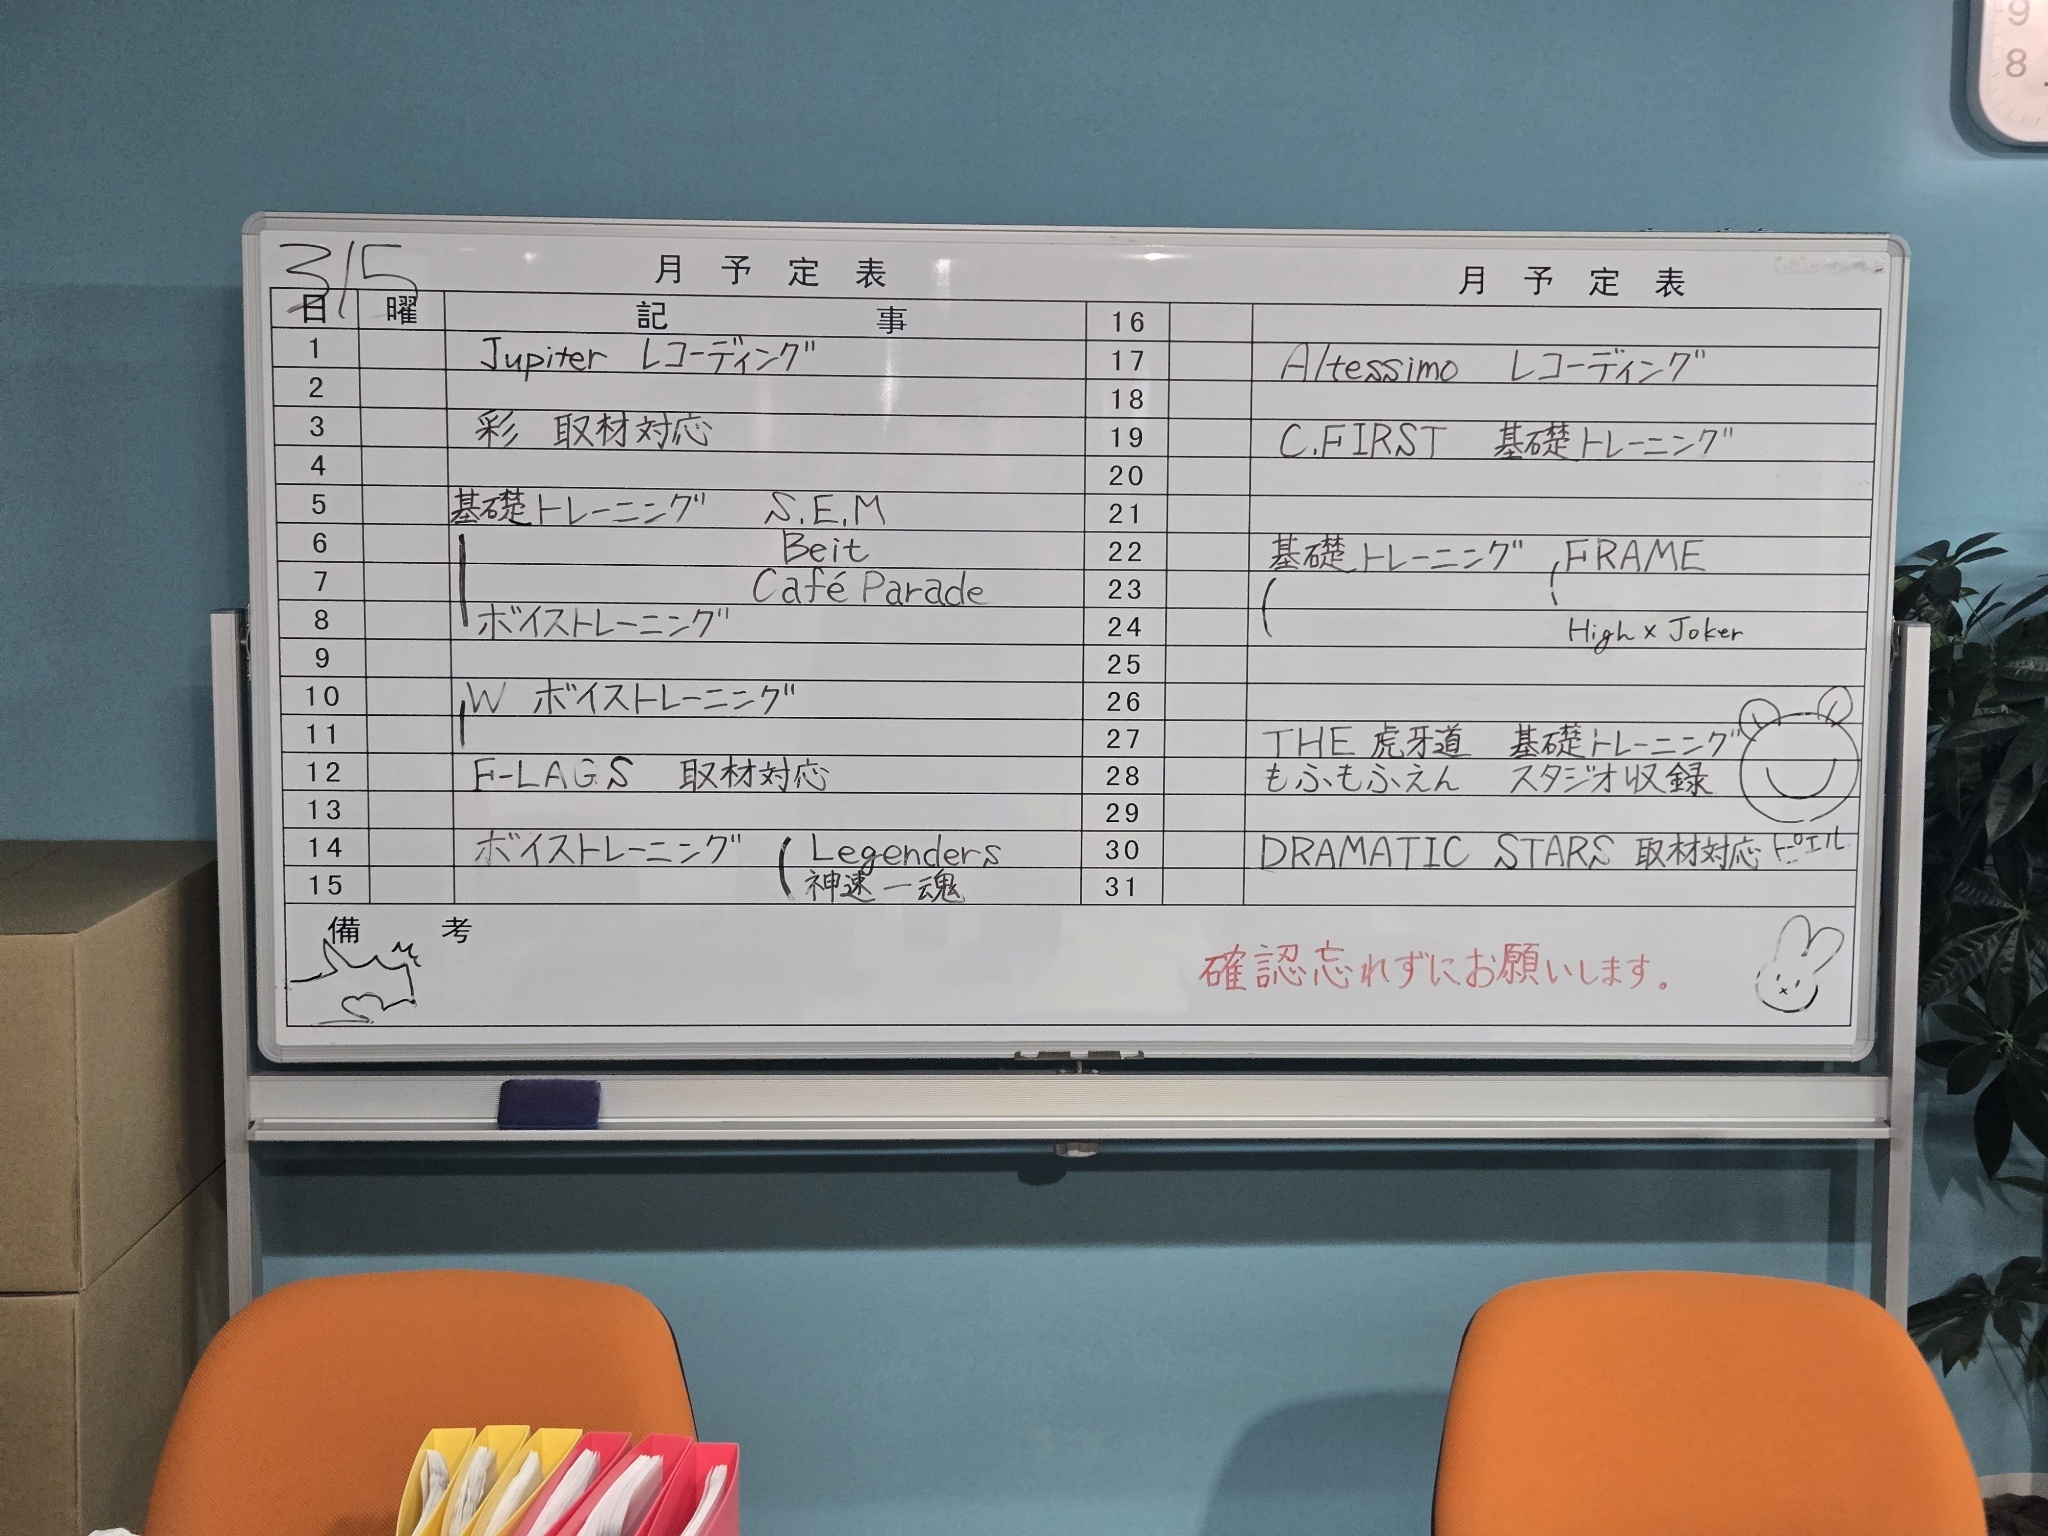 3/5
月予定表
日 曜 記事
1 Jupiter レコーディング
2
3 彩 取材対応
4
5 基礎トレーニング S.E.M
6 Beit
7 Café Parade
8 ボイストレーニング
9
10 W ボイストレーニング
11
12 F-LAGS 取材対応
13
14 ボイストレーニング Legenders
15 神速一魂
備考
月予定表
16
17 Altessimo レコーディング
18
19 C.FIRST 基礎トレーニング
20
21
22 基礎トレーニング FRAME
23
24 High×Joker
25
26
27 THE 虎牙道 基礎トレーニング
28 もふもふえん スタジオ収録
29
30 DRAMATIC STARS 取材対応
31
確認忘れずにお願いします。
9
8